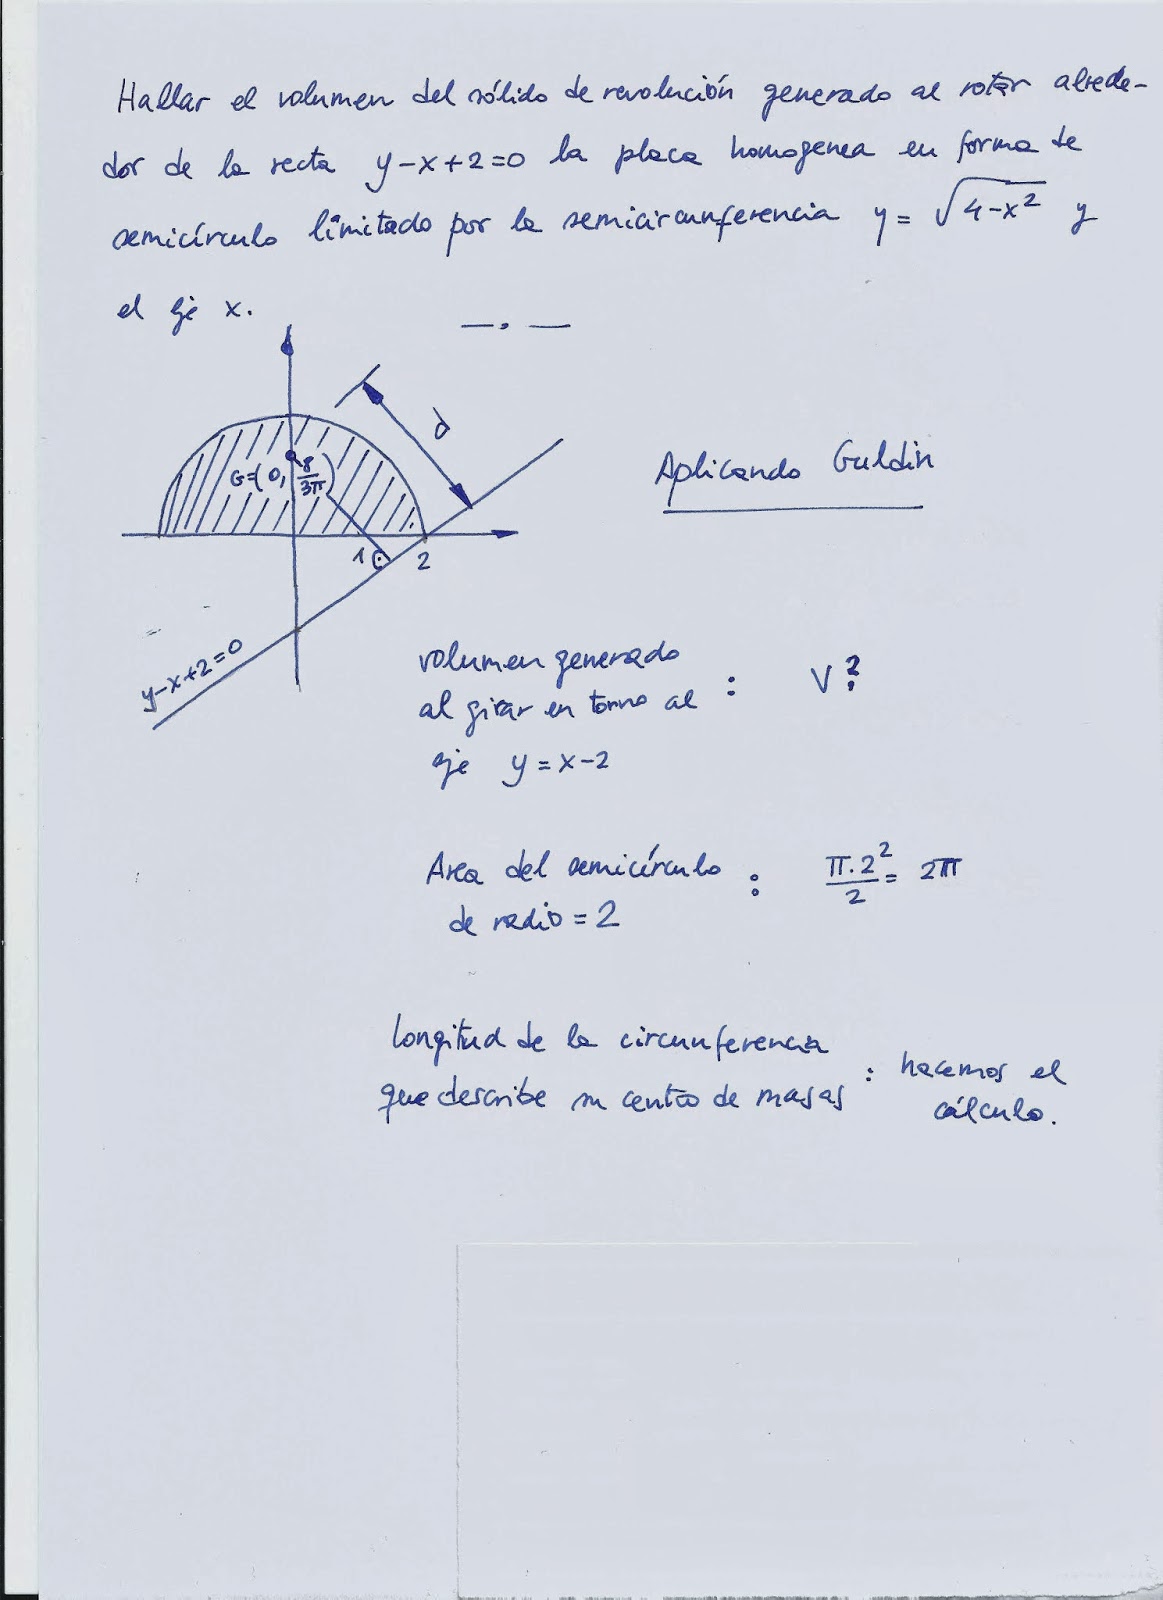 Hallar el volumen del sólido de revolución generado al rotar alrede-
dor de la recta y-x+2=0 la placa homogenea en forma de
semicírculo limitado por la semicircunferencia y = √4-x² y
el eje x.
d
G=(0, 8/3π)
1
2
y-x+2=0
Aplicando Guldin
volumen generado
al girar en torno al : V?
eje y = x-2
Area del semicírculo : π.2²/2 = 2π
de radio = 2
longitud de la circunferencia
que describe su centro de masas : hacemos el
cálculo.